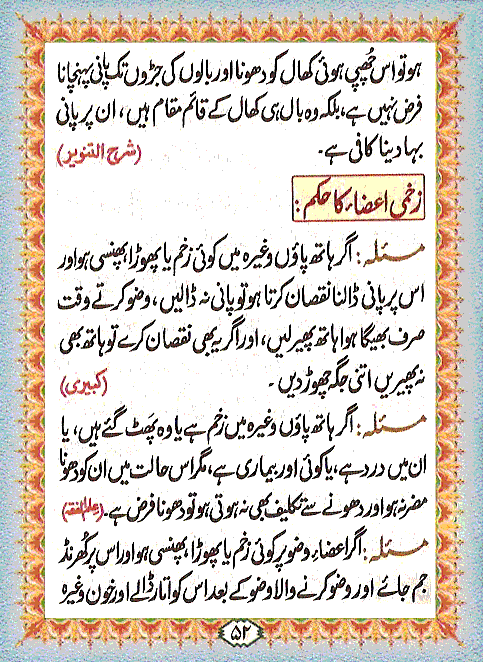 ہو تو اس چُھپی ہوئی کھال کو دھونا اور بالوں کی جڑوں تک پانی پہنچانا
فرض نہیں ہے، بلکہ وہ بال ہی کھال کے قائم مقام ہیں، ان پر پانی
بہا دینا کافی ہے۔ (شرح التنویر)
زخمی اعضاء کا حکم:
مسئلہ: اگر ہاتھ پاؤں وغیرہ میں کوئی زخم یا پھوڑا، پھنسی ہو اور
اس پر پانی ڈالنا نقصان کرتا ہو تو پانی نہ ڈالیں، وضو کرتے وقت
صرف بھیگا ہوا ہاتھ پھیر لیں، اور اگر یہ بھی نقصان کرے تو ہاتھ بھی
نہ پھیریں اتنی جگہ چھوڑ دیں۔ (کبیری)
مسئلہ: اگر ہاتھ پاؤں وغیرہ میں زخم ہے یا وہ پَھٹ گئے ہیں، یا
ان میں درد ہے، یا کوئی اور بیماری ہے، مگر اس حالت میں ان کو دھونا
مضر نہ ہو اور دھونے سے تکلیف بھی نہ ہوتی ہو تو دھونا فرض ہے۔ (علم الفقہ)
مسئلہ: اگر اعضاءِ وضو پر کوئی زخم یا پھوڑا، پھنسی ہو اور اس پر کُھرنڈ
جم جائے اور وضو کرنے والا وضو کے بعد اس کو اتار ڈالے اور خون وغیرہ
۵۲